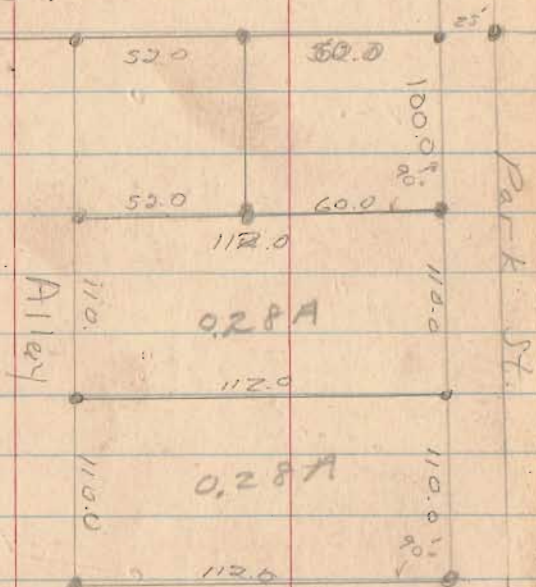 25'
52.0 60.0
100.0
90°
52.0 60.0
112.0
Alley
110.
0.28 A
110.0
Park St.
112.0
110.0
0.28 A
110.0
90°
112.0